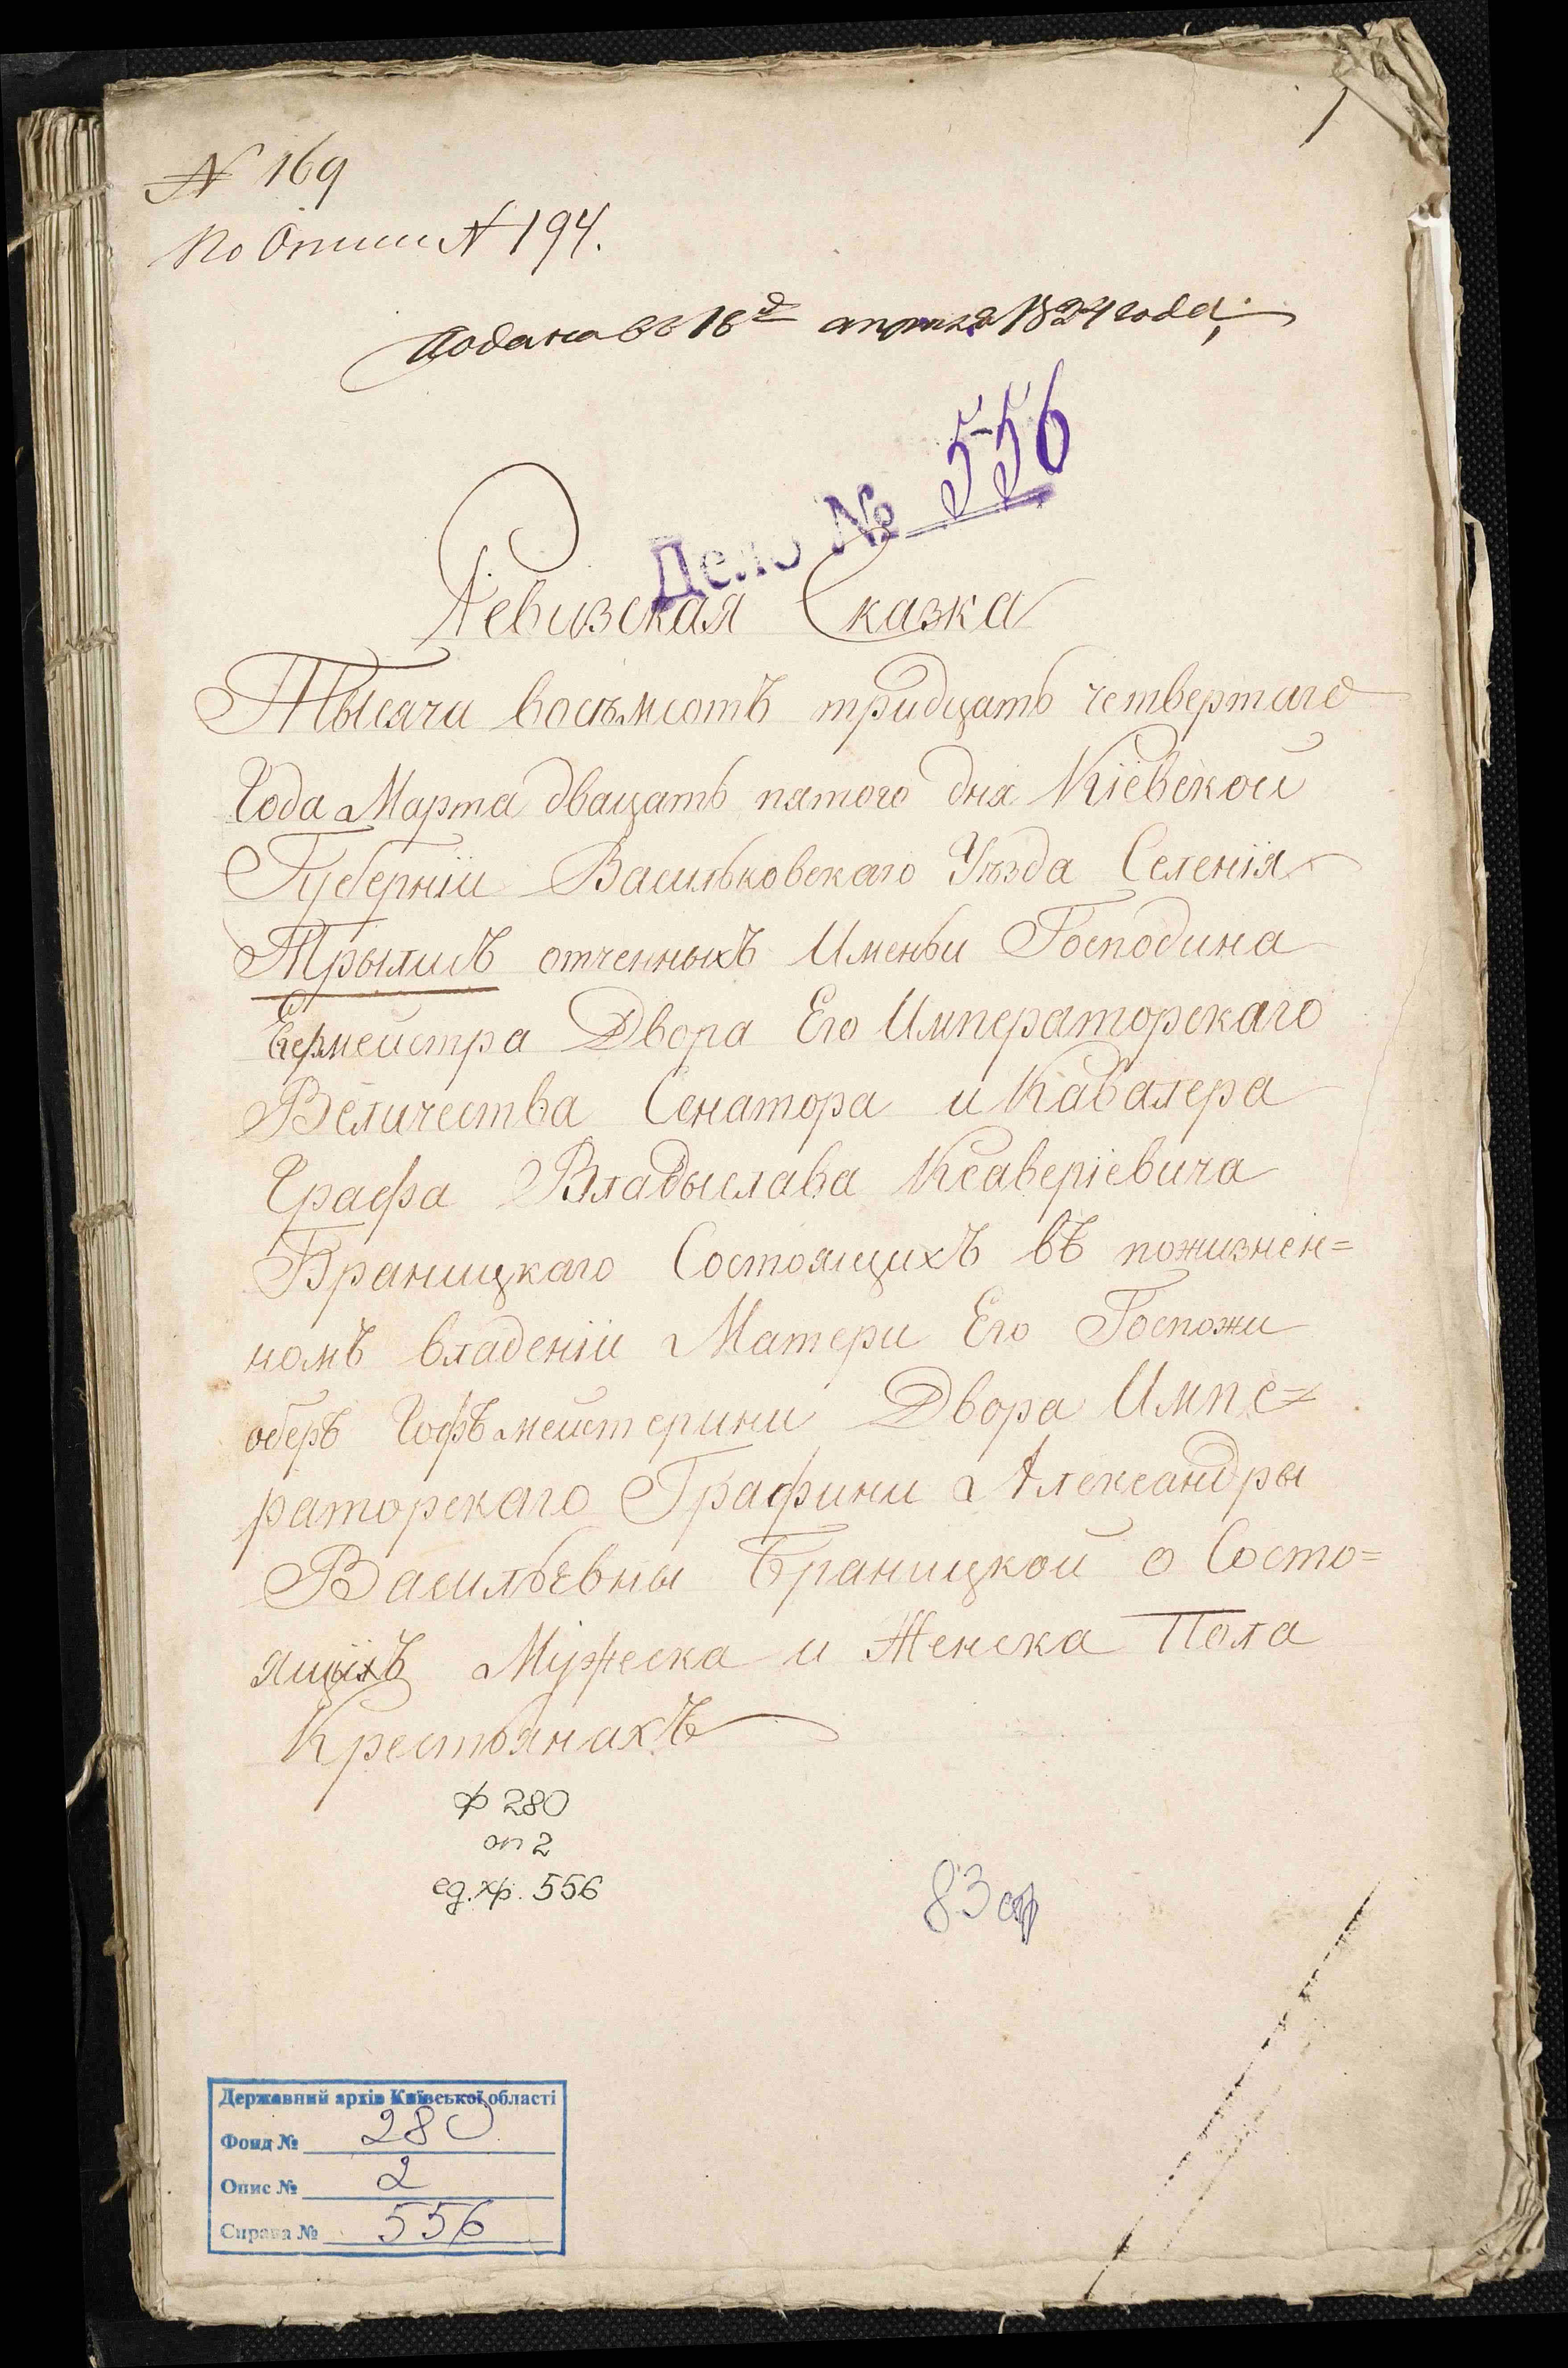 1
№ 169
По Описи № 194.
Подана въ 16 д апреля 1834 года,
Дело № 556
Ревизская Сказка
Тысяча восъмсотъ тридцать четвертаго
Года Марта двацать пятого дня Кіевской
Губерніи Васильковскаго Уѣзда Селенія
Трылисъ отченныхъ Именьи Господина
Егермейстра Двора Его Императорскаго
Величества Сенатора и Кавалера
Графа Владыслава Ксаверіевича
Браницкаго Состоящихъ въ пожизнен=
номъ владеніи Матери Его Госпожи
оберъ Гофъмейстерини Двора Импе=
раторскаго Графини Александры
Васильевны Браницкой о Состо=
ящыхъ Мужеска и Женска Пола
Крестьянахъ
ф 280
оп 2
ед.хр. 556
83
Державний архів Київської області
Фонд № 280
Опис № 2
Справа № 556